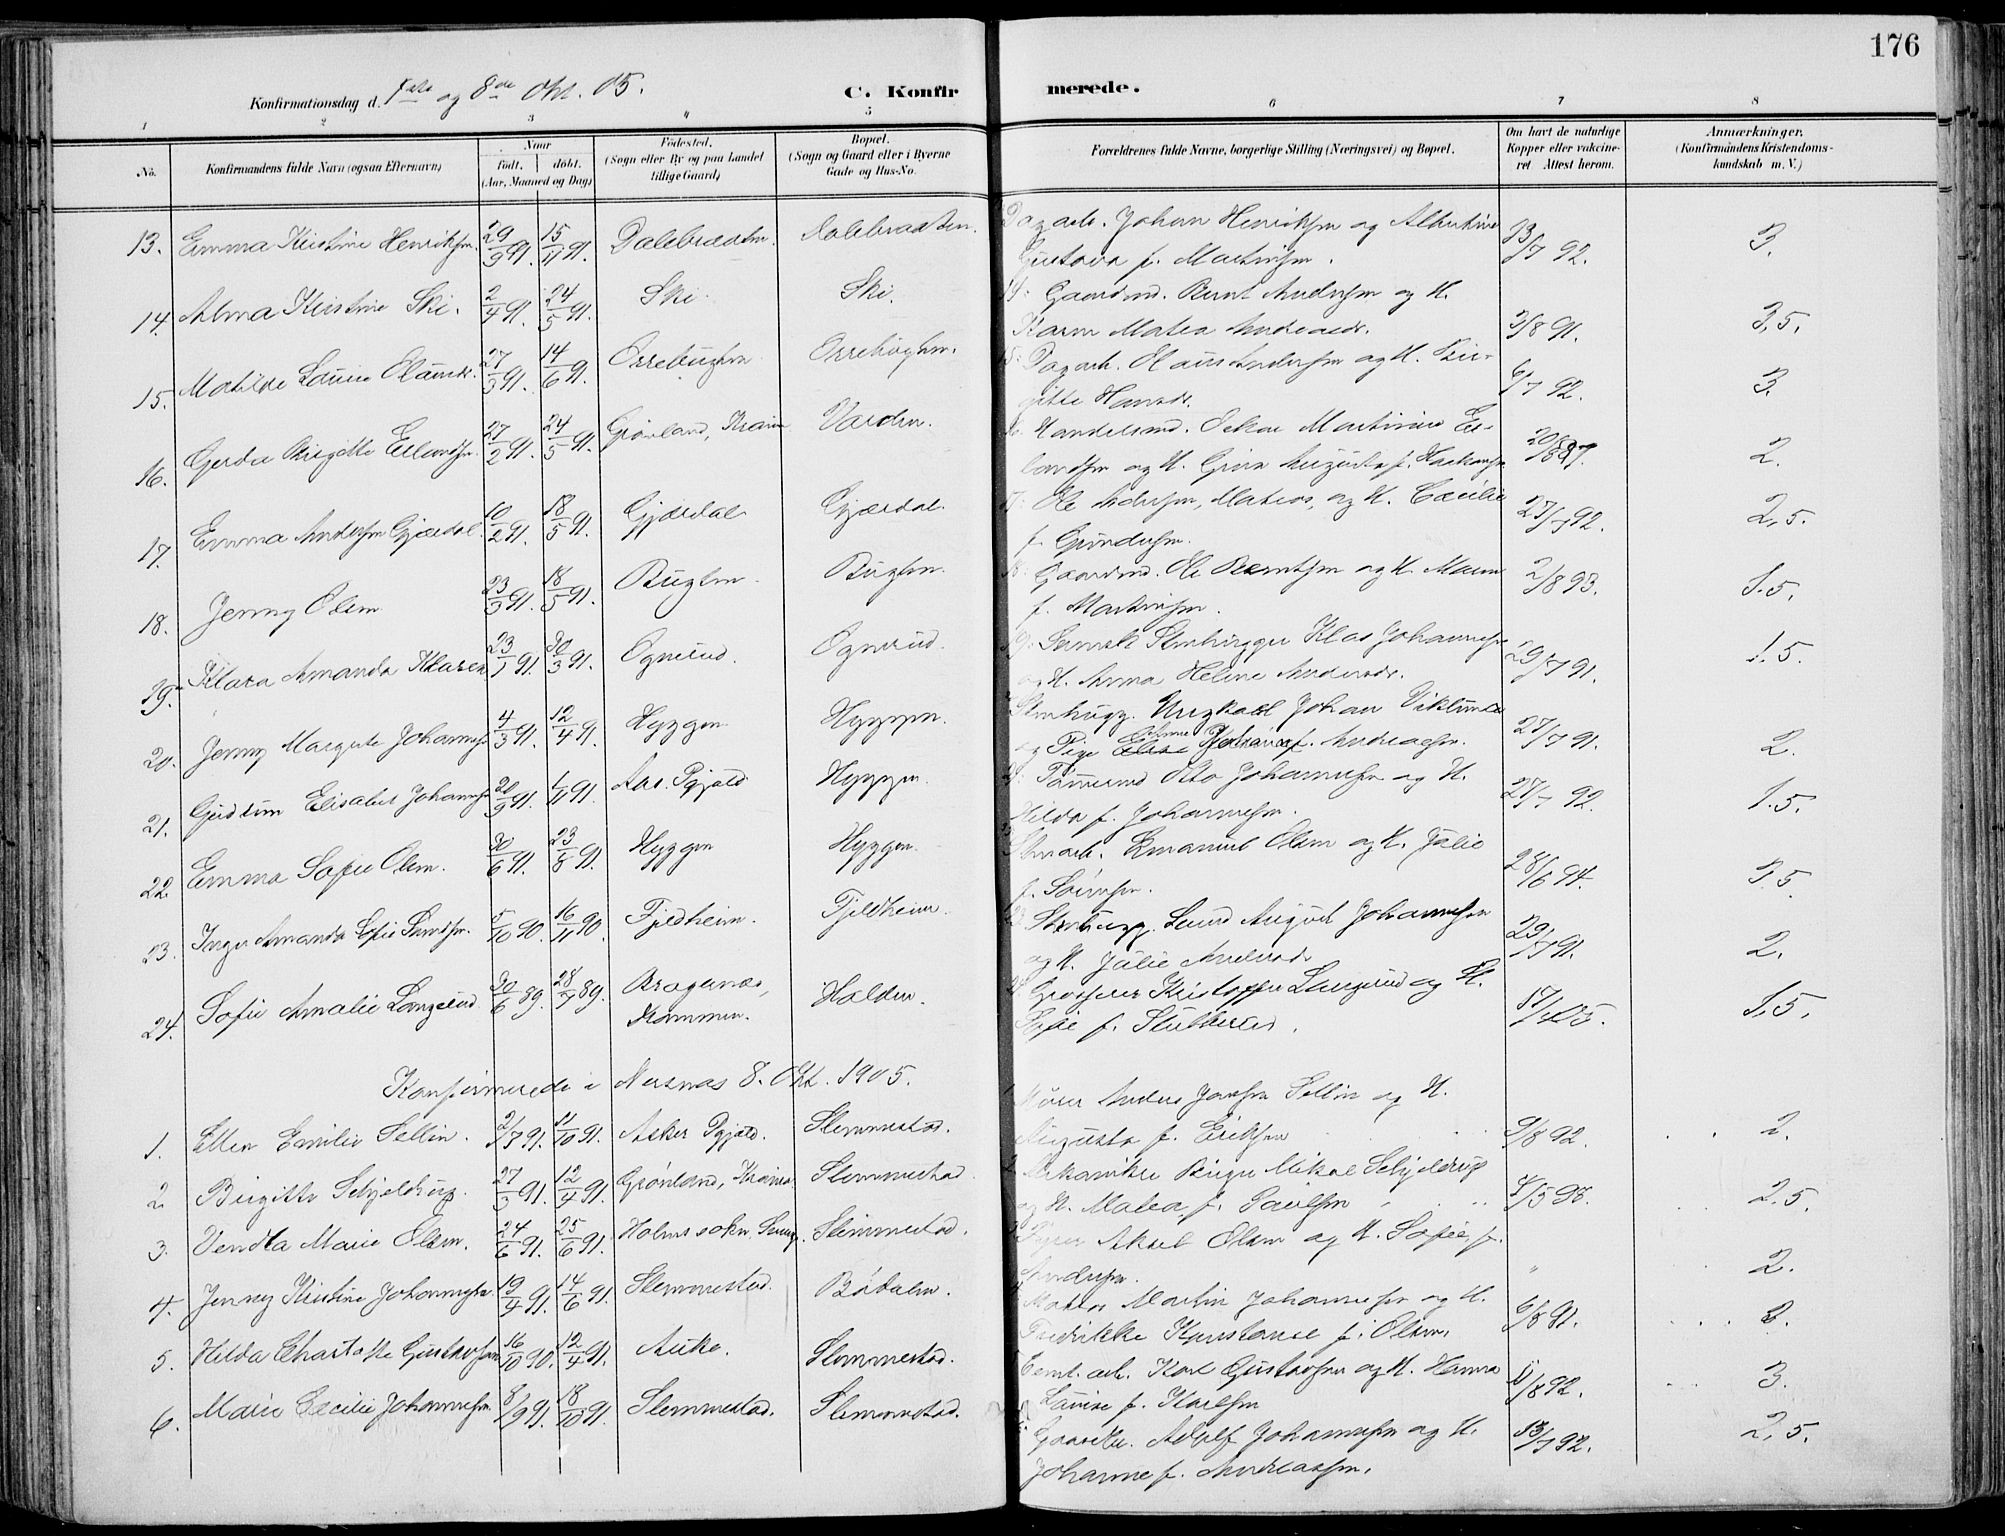 176
Konfirmationsdag d. 1ste og 8de Okt. 05.
C. Konfir merede.
1 2 3 4 5 6 7 8
No.
Konfirmandens fulde Navn (ogsaa Efternavn)
Naar
født. døbt.
(Aar, Maaned og Dag)
Fødested.
(Sogn eller By og paa Landet
tillige Gaard)
Bopæl.
(Sogn og Gaard eller i Byerne
Gade og Hus-No.
Forældrenes fulde Navne, borgerlige Stilling (Næringsvei) og Bopæl.
Om havt de naturlige
Kopper eller vakcine-
ret Attest herom.
Anmærkninger.
(Konfirmandens Kristendoms-
kundskab m. V.)
13. Emma Kristine Henriksen. 29/9 91. 15/11 91. Dalebraaten. Dalebraaten. Dagarb. Johan Henriksen og Albertine 13/7 92. 3.
Gustava f. Martinsen.
14. Alma Kristine Ski. 2/4 91. 24/5 91. Ski. Ski. Gaardmd. Bernt Andersen og H. 3/8 91. 3,5.
Karen Matea Andreasdr.
15. Matilde Louise Olausdr. 27/3 91. 14/6 91. Orrebugten. Orrebugten. Dagarb. Olaus Andersen og H. Bir- 6/7 92. 3.
gitte Hansdr.
16. Gerda Birgitte Erlandsen. 27/2 91. 24/5 91. Grønland, Kr.ania Varden. Handelsmd. Oskar Martinius Er- 20/8 87. 2.
landsen og H. Gina Augusta f. Haakonsen
17. Emma Andersen Gjerdal. 10/2 91. 18/5 91. Gjerdal Gjerdal. Ole Andersen, Matros, og H. Cæcilie 27/7 92. 2,5.
f. Gundersen.
18. Jenny Olsen 23/3 91. 18/5 91. Bugten. Bugten. Gaardmd. Ole Berntsen og H. Maren 2/8 93. 1.5.
f. Martinsen.
19. Klara Amanda Klasen 23/1 91. 30/3 91. Ognerud. Ognerud. Stenhugger Klas Johannesen 29/7 91. 1.5.
og H. Anna Helene Andersdr.
20. Jenny Margrete Johannesen 4/3 91. 12/4 91. Hyggen. Hyggen. Stenhugg. Ungkarl Johan Viklund 27/7 91. 2.
og Pige f. Andreassen.
21. Gudrun Elisabet Johannesen 20/9 91. 1/11 91. Aas. Pgjæld Hyggen. Tømmermd Otto Johannesen og H. 27/7 92. 1.5.
Hilda f. Johannesen.
22. Emma Sofie Olsen. 30/6 91. 23/8 91. Hyggen Hyggen. Stenarb. Emanuel Olsen og H. Julie 28/6 94. 3.5
f. Sørensen.
23. Inga Amanda Sofie Lundsen. 5/10 90. 16/11 90. Fjeldheim. Fjeldheim. Stenhugg. Lund August Johannesen 29/7 91. 2.
og H. Julie Andersdr.
24. Sofie Amalie Langerud 30/6 89. 28/7 89. Bragernæs, Halden. Grosserer Kristoffer Langerud og H. 1,5.
Drammen. Sofie f. Stubberud.
Konfirmerede i Nersnæs 8. Okt. 1905.
1. Ellen Emilie Sellin. 2/7 91. 11/10 91. Asker Pgjæld. Slemmestad. Murer Anders Jonsen Sellin og H. 9/8 92. 2.
Augusta f. Eriksen
2. Birgitte Schjeldrup. 27/3 91. 12/4 91. Grønland, Kr.ania Slemmestad. Mekaniker Birger Mikal Schjeldrup 4/5 98. 2.5.
og H. Matea f. Paulsen
3. Vendla Marie Olsen. 24/6 91. 25/6 91. Holms sokn Slemmestad. Fyrer Aksel Olsen og H. Sofie f. 2.
Andersen.
4. Jenny Kristine Johannesen 19/4 91. 14/6 91. Slemmestad. Bødalen. Matros Martin Johannesen og H. 6/8 91. 2.
Fredrikke Konstanse f. Olsen.
5. Hilda Charlotte Gustavsen 16/10 90. 12/4 91. Slemmestad. Cemt. arb. Karl Gustavsen og H. Hanna 11/8 92. 3.
Lauise f. Karlsen
6. Marie Cæcilie Johannesen 8/9 91. 18/10 91. Slemmestad. Slemmestad. Adolf Johannesen og H. 13/7 92. 2,5.
Johanne f. Andreassen.